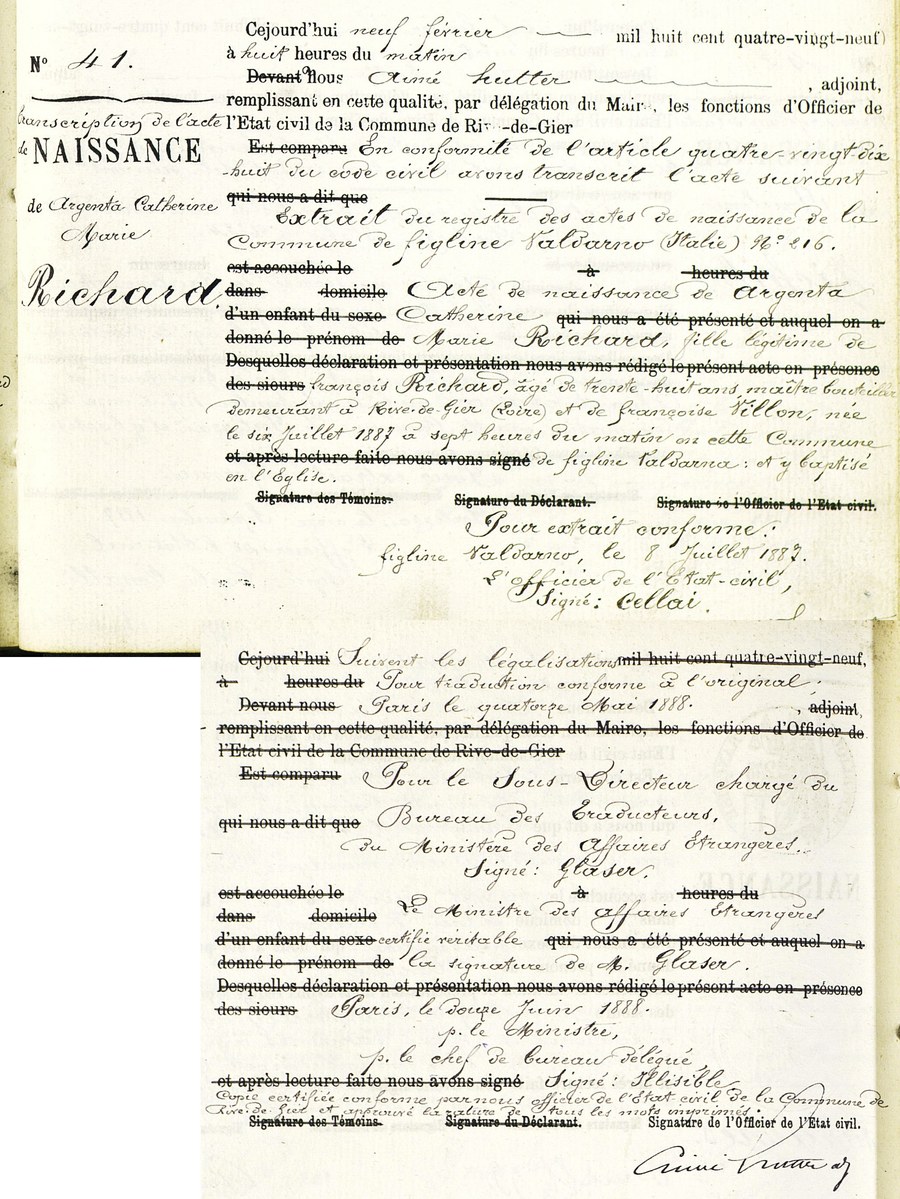 Cejourd'hui neuf février mil huit cent quatre-vingt-neuf
à huit heures du matin
Nº 41.
Devant Nous Aimé hutter , adjoint,
remplissant en cette qualité, par délégation du Maire, les fonctions d'Officier de
transcription de l'acte
l'Etat civil de la Commune de Rive-de-Gier
de NAISSANCE
Est comparu En conformité de l'article quatre-vingt-dix
-huit du code civil avons transcrit l'acte suivant
qui nous a dit que
de Argenta Catherine
Marie
Extrait du registre des actes de naissance de la
Commune de figline Valdarno (Italie) Nº 216.
est accouchée le à heures du
Richard,
dans domicile Acte de naissance de Argenta
d'un enfant du sexe Catherine qui nous a été présenté et auquel on a
donné le prénom de Marie Richard, fille légitime de
Desquelles déclaration et présentation nous avons rédigé le présent acte en présence
des sieurs françois Richard, âgé de trente-huit ans, maître bouteiller
demeurant à Rive-de-Gier (Loire) et de françoise Villon, née
le six Juillet 1887 à sept heures du matin en cette Commune
et après lecture faite nous avons signé de figline Valdarna : et y baptisé
en l'Eglise.
Signature des Témoins. Signature du Déclarant. Signature de l'Officier de l'Etat civil.
Pour extrait conforme :
figline Valdarno, le 8 Juillet 1887.
L'officier de l'Etat-civil,
Signé : Cellai.
Cejourd'hui Suivent les légalisations mil huit cent quatre-vingt-neuf,
à heures du Pour traduction conforme à l'original ;
Devant nous Paris le quatorze Mai 1888. , adjoint,
remplissant en cette qualité, par délégation du Maire, les fonctions d'Officier de
l'Etat civil de la Commune de Rive-de-Gier
Est comparu Pour le Sous-Directeur chargé du
qui nous a dit que Bureau des Traducteurs,
du Ministère des Affaires Etrangères.
Signé : Glaser.
est accouchée le à heures du
dans domicile Le Ministre des affaires Etrangères
d'un enfant du sexe certifie véritable qui nous a été présenté et auquel on a
donné le prénom de la signature de M. Glaser.
Desquelles déclaration et présentation nous avons rédigé le présent acte en présence
des sieurs Paris, le douze Juin 1888.
p. le Ministre,
p. le chef de bureau délégué,
et après lecture faite nous avons signé Signé : Illisible
Copie certifiée conforme par nous officier de l'Etat civil de la Commune de
Rive-de-Gier et approuvé la rature de tous les mots imprimés.
Signature des Témoins. Signature du Déclarant. Signature de l'Officier de l'Etat civil.
Aimé hutter adj